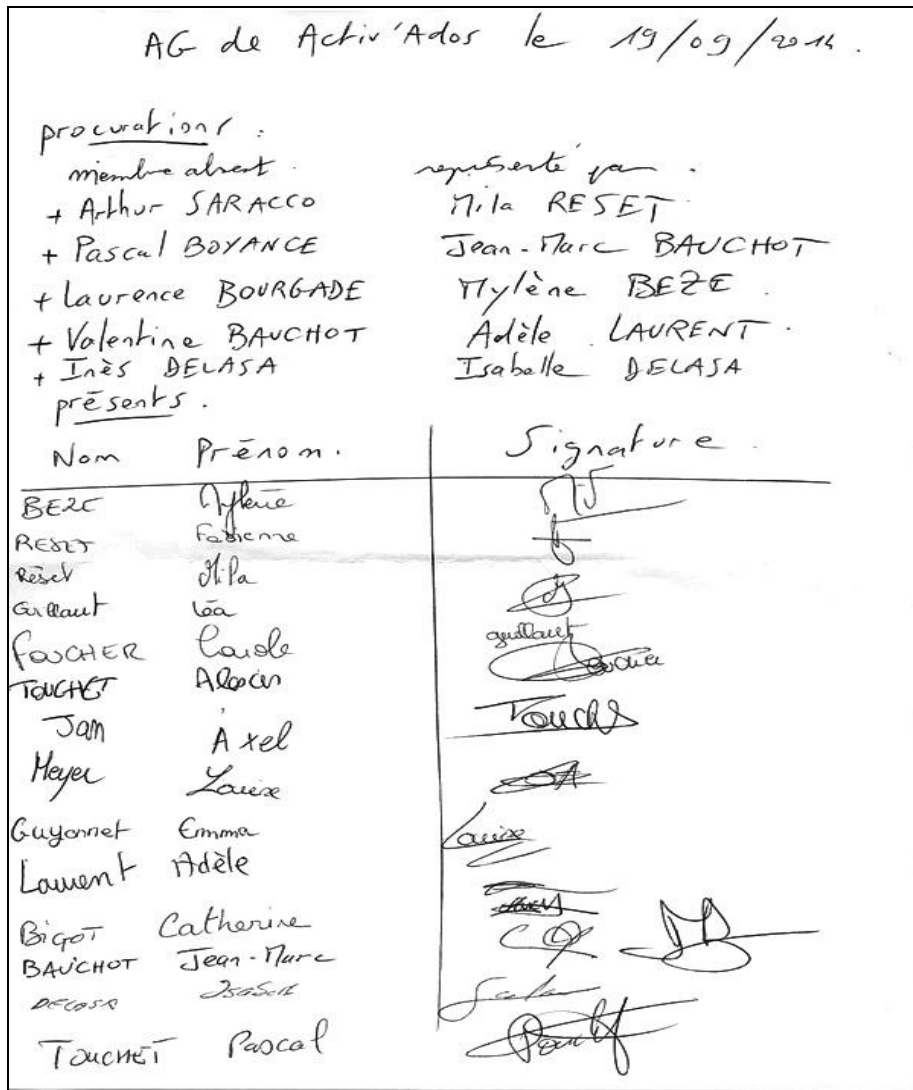 AG de Activ'Ados le 19/09/2014.
procurations :
membre absent. représenté par.
+ Arthur SARACCO Mila RESET
+ Pascal BOYANCE Jean-Marc BAUCHOT
+ Laurence BOURGADE Mylène BEZE.
+ Valentine BAUCHOT Adèle LAURENT.
+ Inès DELASA Isabelle DELASA
présents.
Nom Prénom. Signature.
BEZE Mylène
RESET Fabienne
Réset Mila
Guillaut Léa
guillaut
FOUCHER Carole Foucher
TOUCHET Touche
Jan Axel
Meyer Louise
Guyonnet Emma Louise
Laurent Adèle
BIGOT Catherine
BAUCHOT Jean-Marc
DELASA
TOUCHET Pascal